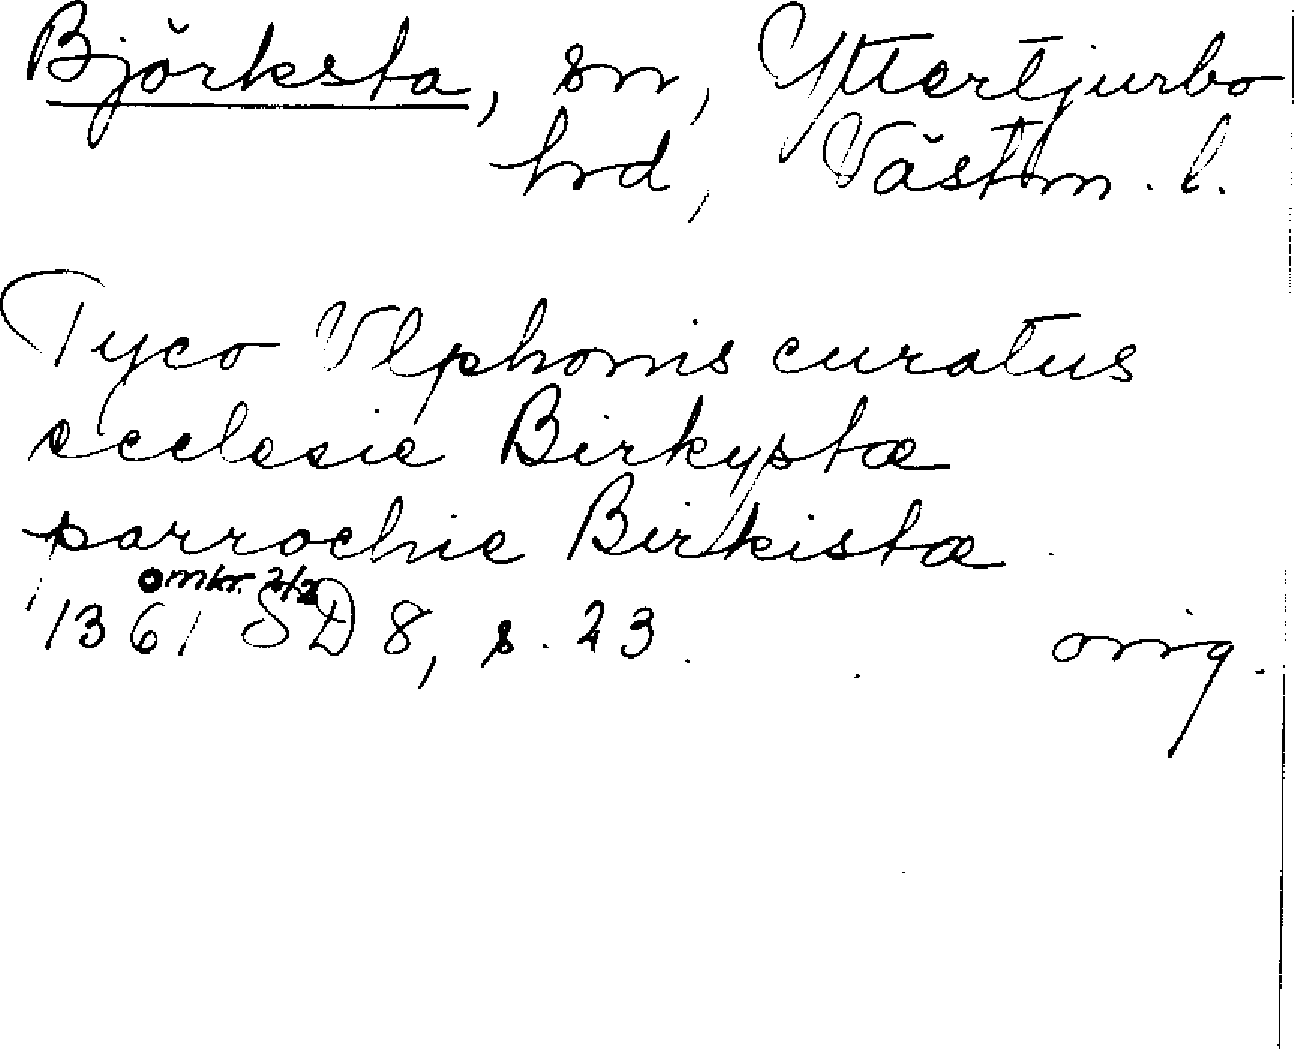 Björksta, sn, Yttertjurbo
hrd, Västm. l.
Tyco Vlphonis curatus
ecclesie Birkystæ
parrochie Birkistæ
omkr. 2/2
1361 SD 8, s. 23.
orig.